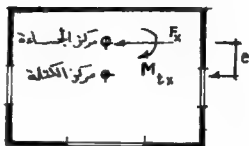 مركز الجساءة
Fx
e
مركز الكتلة
Mtx